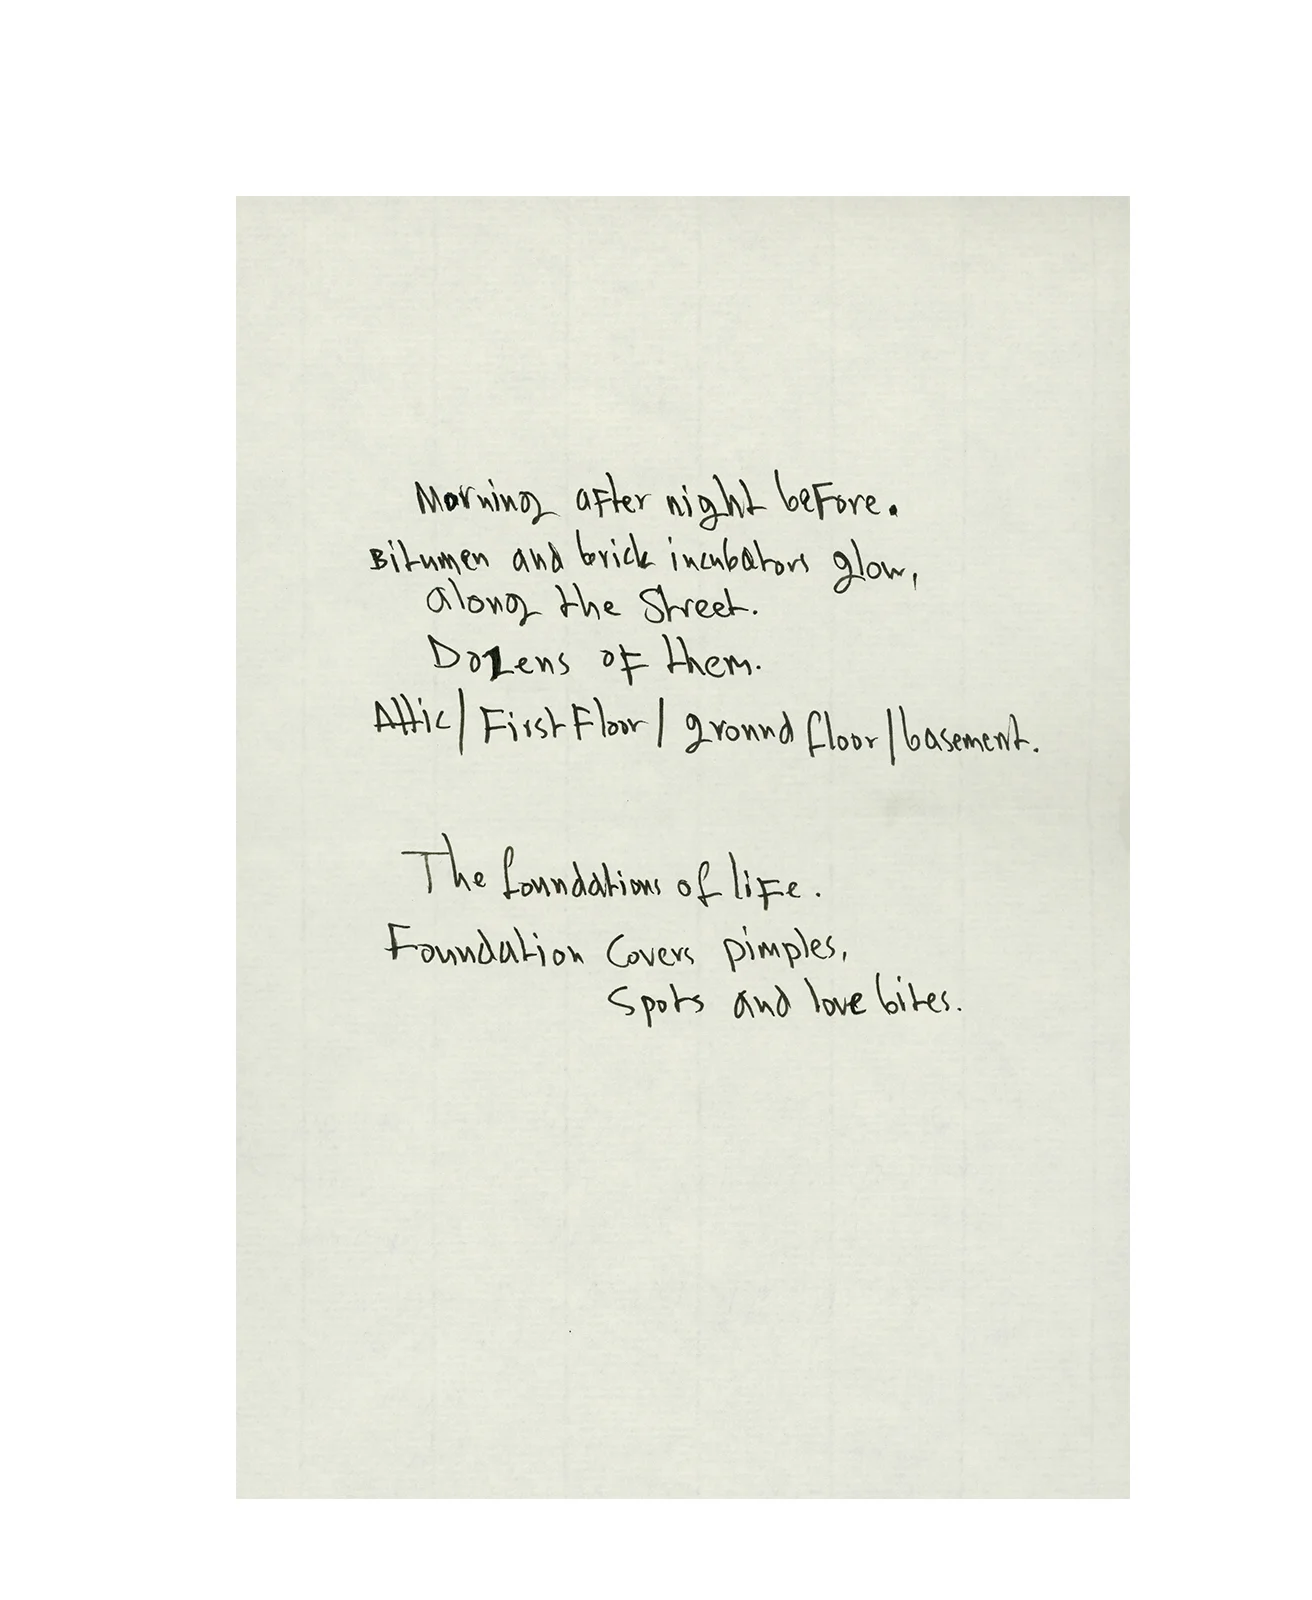 Morning after night before.
Bitumen and brick incubators glow,
along the street.
Dozens of them.
Attic/First Floor/ground floor/basement.
The foundations of life.
Foundation covers pimples,
spots and love bites.